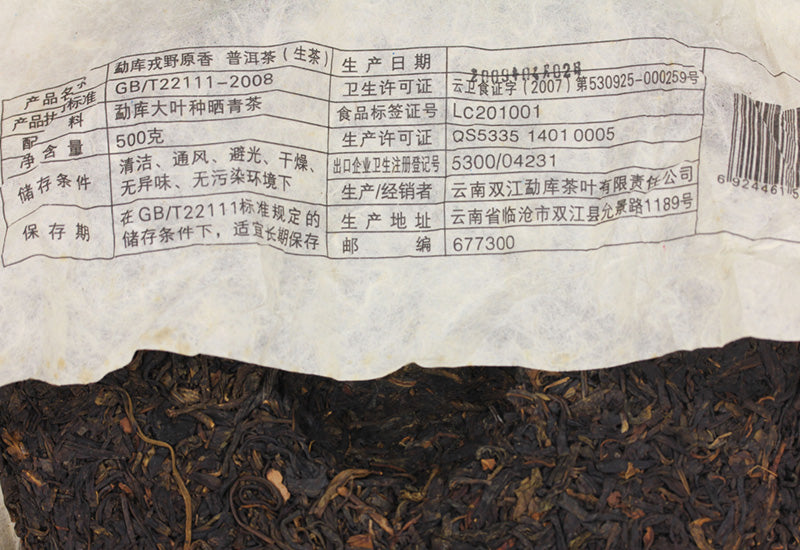 产品名 勐库戎野原香 普洱茶(生茶)
产品执行标准 GB/T22111-2008
配 料 勐库大叶种晒青茶
净含量 500克
储存条件 清洁、通风、避光、干燥、
无异味、无污染环境下
保存期 在GB/T22111标准规定的
储存条件下,适宜长期保存
生产日期
卫生许可证 云卫食证字(2007)第530925-000259号
食品标签证号 LC201001
生产许可证 QS5335 1401 0005
出口企业卫生注册登记号 5300/04231
生产/经销者 云南双江勐库茶叶有限责任公司
生产地址 云南省临沧市双江县允景路1189号
邮 编 677300
6 924461 5